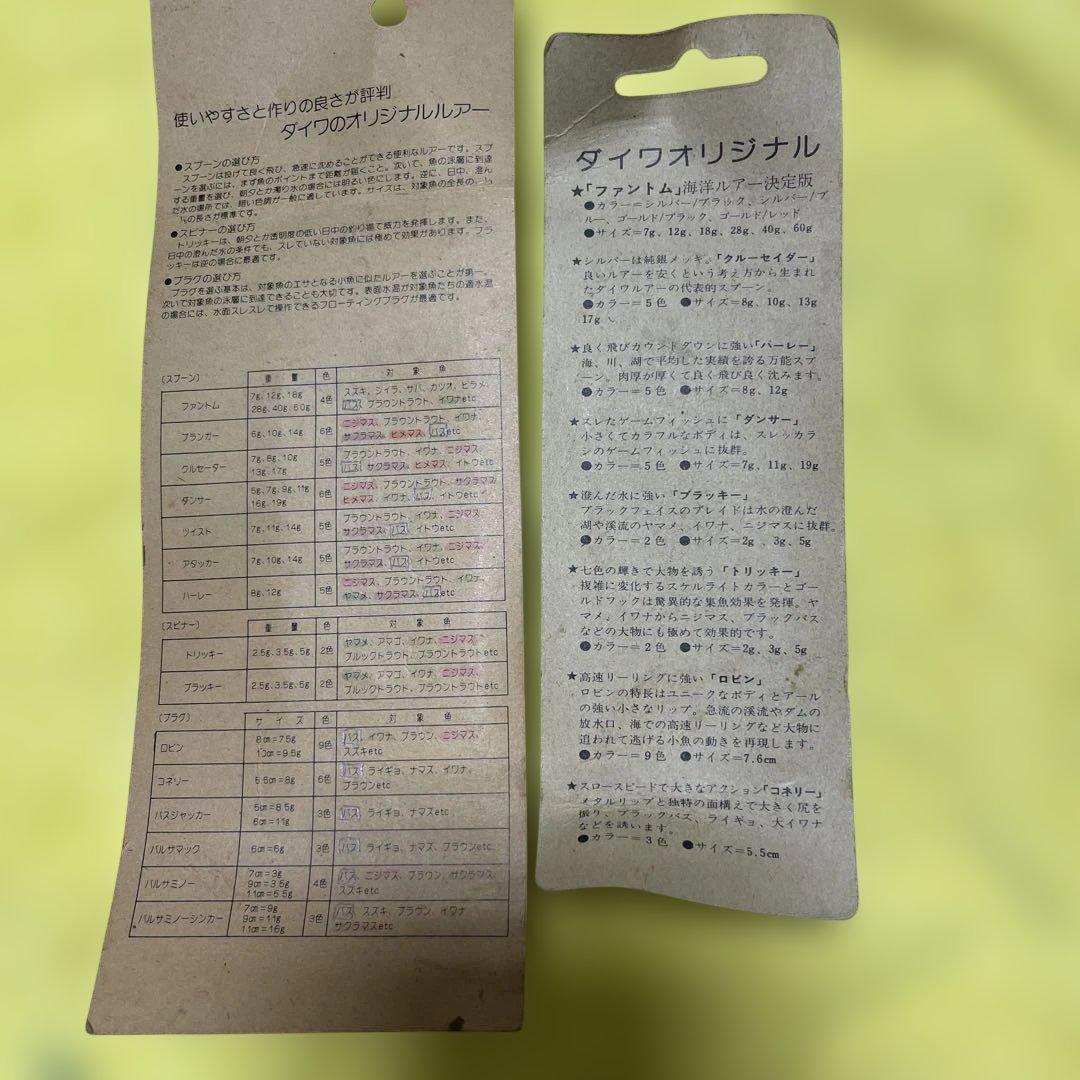 使いやすさと作りの良さが評判
ダイワのオリジナルルアー
●スプーンの選び方
スプーンは投げて良く飛び、急速に沈めることができる便利なルアーです。スプ
ーンを選ぶには、まず魚のポイントまで距離が届くこと。次いで、魚の泳層に到達
する重量を選び、朝夕とか濁り水の場合には明るい色にします。逆に、日中、澄ん
だ水の場所では、暗い色調が一般に適しています。サイズは、対象魚の全長の
の長さが標準です。
●スピナーの選び方
トリッキーは、朝夕とか透明度の低い日中の釣り場で威力を発揮します。また、
日中の澄んだ水の条件でも、スレていない対象魚には極めて効果があります。ブラ
ッキーは逆の場合に最適です。
●プラグの選び方
プラグを選ぶ基本は、対象魚のエサとなる小魚に似たルアーを選ぶことが第一。
次いで対象魚の泳層に到達できることも大切です。表面水温が対象魚たちの適水温
の場合には、水面スレスレで操作できるフローティングプラグが最適です。
(スプーン) 重量 色 対象魚
ファントム 7g、12g、18g 28g、40g、60g 4色 スズキ、シイラ、サバ、カツオ、ヒラメ、 バス、ブラウントラウト、イワナetc
プランガー 6g、10g、14g 6色 ニジマス、ブラウントラウト、イワナ、 サクラマス、ヒメマス、バスetc
クルセーダー 7g、8g、10g 13g、17g 5色 ブラウントラウト、イワナ、ニジマス、 バス、サクラマス、ヒメマス、イトウetc
ダンサー 5g、7g、9g、11g 16g、19g 6色 ニジマス、ブラウントラウト、サクラマス ヒメマス、イワナ、バス、イトウetc
ツイスト 7g、11g、14g 5色 ブラウントラウト、イワナ、ニジマス、 サクラマス、バス、イトウetc
アタッカー 7g、10g、14g 5色 ブラウントラウト、イワナ、ニジマス、 サクラマス、バス、イトウetc
バーレー 8g、12g 5色 ニジマス、ブラウントラウト、イワナ、 ヤマメ、サクラマス、バスetc
(スピナー) 重量 色 対象魚
トリッキー 2.5g、3.5g、5g 2色 ヤマメ、アマゴ、イワナ、ニジマス、 ブルックトラウト、ブラウントラウトetc
ブラッキー 2.5g、3.5g、5g 2色 ヤマメ、アマゴ、イワナ、ニジマス、 ブルックトラウト、ブラウントラウトetc
(プラグ) サイズ 色 対象魚
ロビン 8cm=7.5g 10cm=9.5g 9色 バス、イワナ、ブラウン、ニジマス、 スズキetc
コネリー 5.5cm=8g 6色 バス、ライギョ、ナマズ、イワナ、 ブラウンetc
バスジャッカー 5cm=8.5g 6cm=11g 3色 バス、ライギョ、ナマズetc
バルサマック 6cm=6g 3色 バス、ライギョ、ナマズ、ブラウンetc
バルサミノー 7cm=3g 9cm=3.5g 11cm=5.5g 4色 バス、ニジマス、ブラウン、サクラマス、 スズキetc
バルサミノーシンカー 7cm=9g 9cm=11g 11cm=16g 3色 バス、スズキ、ブラウン、イワナ サクラマスetc
ダイワオリジナル
★「ファントム」海洋ルアー決定版
●カラー=シルバー/ブラック、シルバー/ブ
ルー、ゴールド/ブラック、ゴールド/レッド
●サイズ=7g、12g、18g、28g、40g、60g
★シルバーは純銀メッキ。「クルーセイダー」
良いルアーを安くという考え方から生まれ
たダイワルアーの代表的スプーン。
●カラー=5色 ●サイズ=8g、10g、13g
17g
★良く飛びカウントダウンに強い「バーレー」
海、川、湖で平均した実績を誇る万能スプ
ーン。肉厚が厚くて良く飛び良く沈みます。
●カラー=5色 ●サイズ=8g、12g
★スレたゲームフィッシュに「ダンサー」
小さくてカラフルなボディは、スレッカラ
ンのゲームフィッシュに抜群。
●カラー=5色 ●サイズ=7g、11g、19g
★澄んだ水に強い「ブラッキー」
ブラックフェイスのブレイドは水の澄んだ
湖や渓流のヤマメ、イワナ、ニジマスに抜群。
●カラー=2色 ●サイズ=2g、3g、5g
★七色の輝きで大物を誘う「トリッキー」
複雑に変化するスケルライトカラーとゴー
ルドフックは驚異的な集魚効果を発揮。ヤ
マメ、イワナからニジマス、ブラックバス
などの大物にも極めて効果的です。
●カラー=2色 ●サイズ=2g、3g、5g
★高速リーリングに強い「ロビン」
ロビンの特長はユニークなボディとアール
の強い小さなリップ。急流の渓流やダムの
放水口、海での高速リーリングなど大物に
追われて逃げる小魚の動きを再現します。
●カラー=9色 ●サイズ=7.6cm
★スロースピードで大きなアクション「コネリー」
メタルリップと独特の面構えで大きく尻を
振り、ブラックバス、ライギョ、大イワナ
などを誘います。
●カラー=3色 ●サイズ=5.5cm